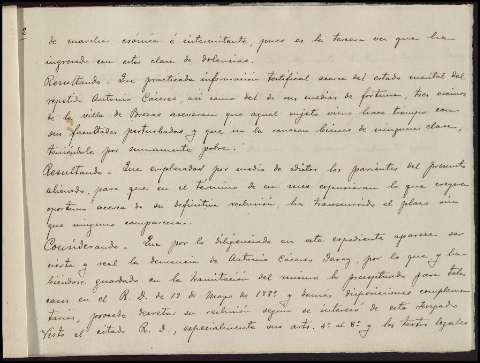 2
de marcha crónica ó intermitente, pues es la tercera vez que ha
ingresado con esta clase de dolencias.
Resultando. Que practicada información testifical acerca del estado mental del
repetido Antonio Cáceres, así como del de sus medios de fortuna, tres vecinos
de la villa de Brozas aseveraron que aquel sujeto viene hace tiempo con
sus facultades perturbadas y que no la conocen bienes de ninguna clase,
teniéndole por sumamente pobre.
Resultando. Que emplazados por medio de edictos los parientes del presunto
alienado, para que en el término de un mes expusieran lo que creyeran
oportuno acerca de su definitiva reclusión, ha transcurrido el plazo sin
que ninguno comparezca.
Considerando. Que por lo diligenciado en este expediente aparece ser
cierta y real la demencia de Antonio Cáceres, por lo que y ha-
biéndose guardado en la tramitación del mismo lo preceptuado para tales
casos en el R. D. de 19 de Mayo de 188 y demás disposiciones complemen-
tarias, procede decretar su reclusión según se interesa de este Juzgado
Visto el citado R. D., especialmente sus arts. 4º al 8º y los textos legales